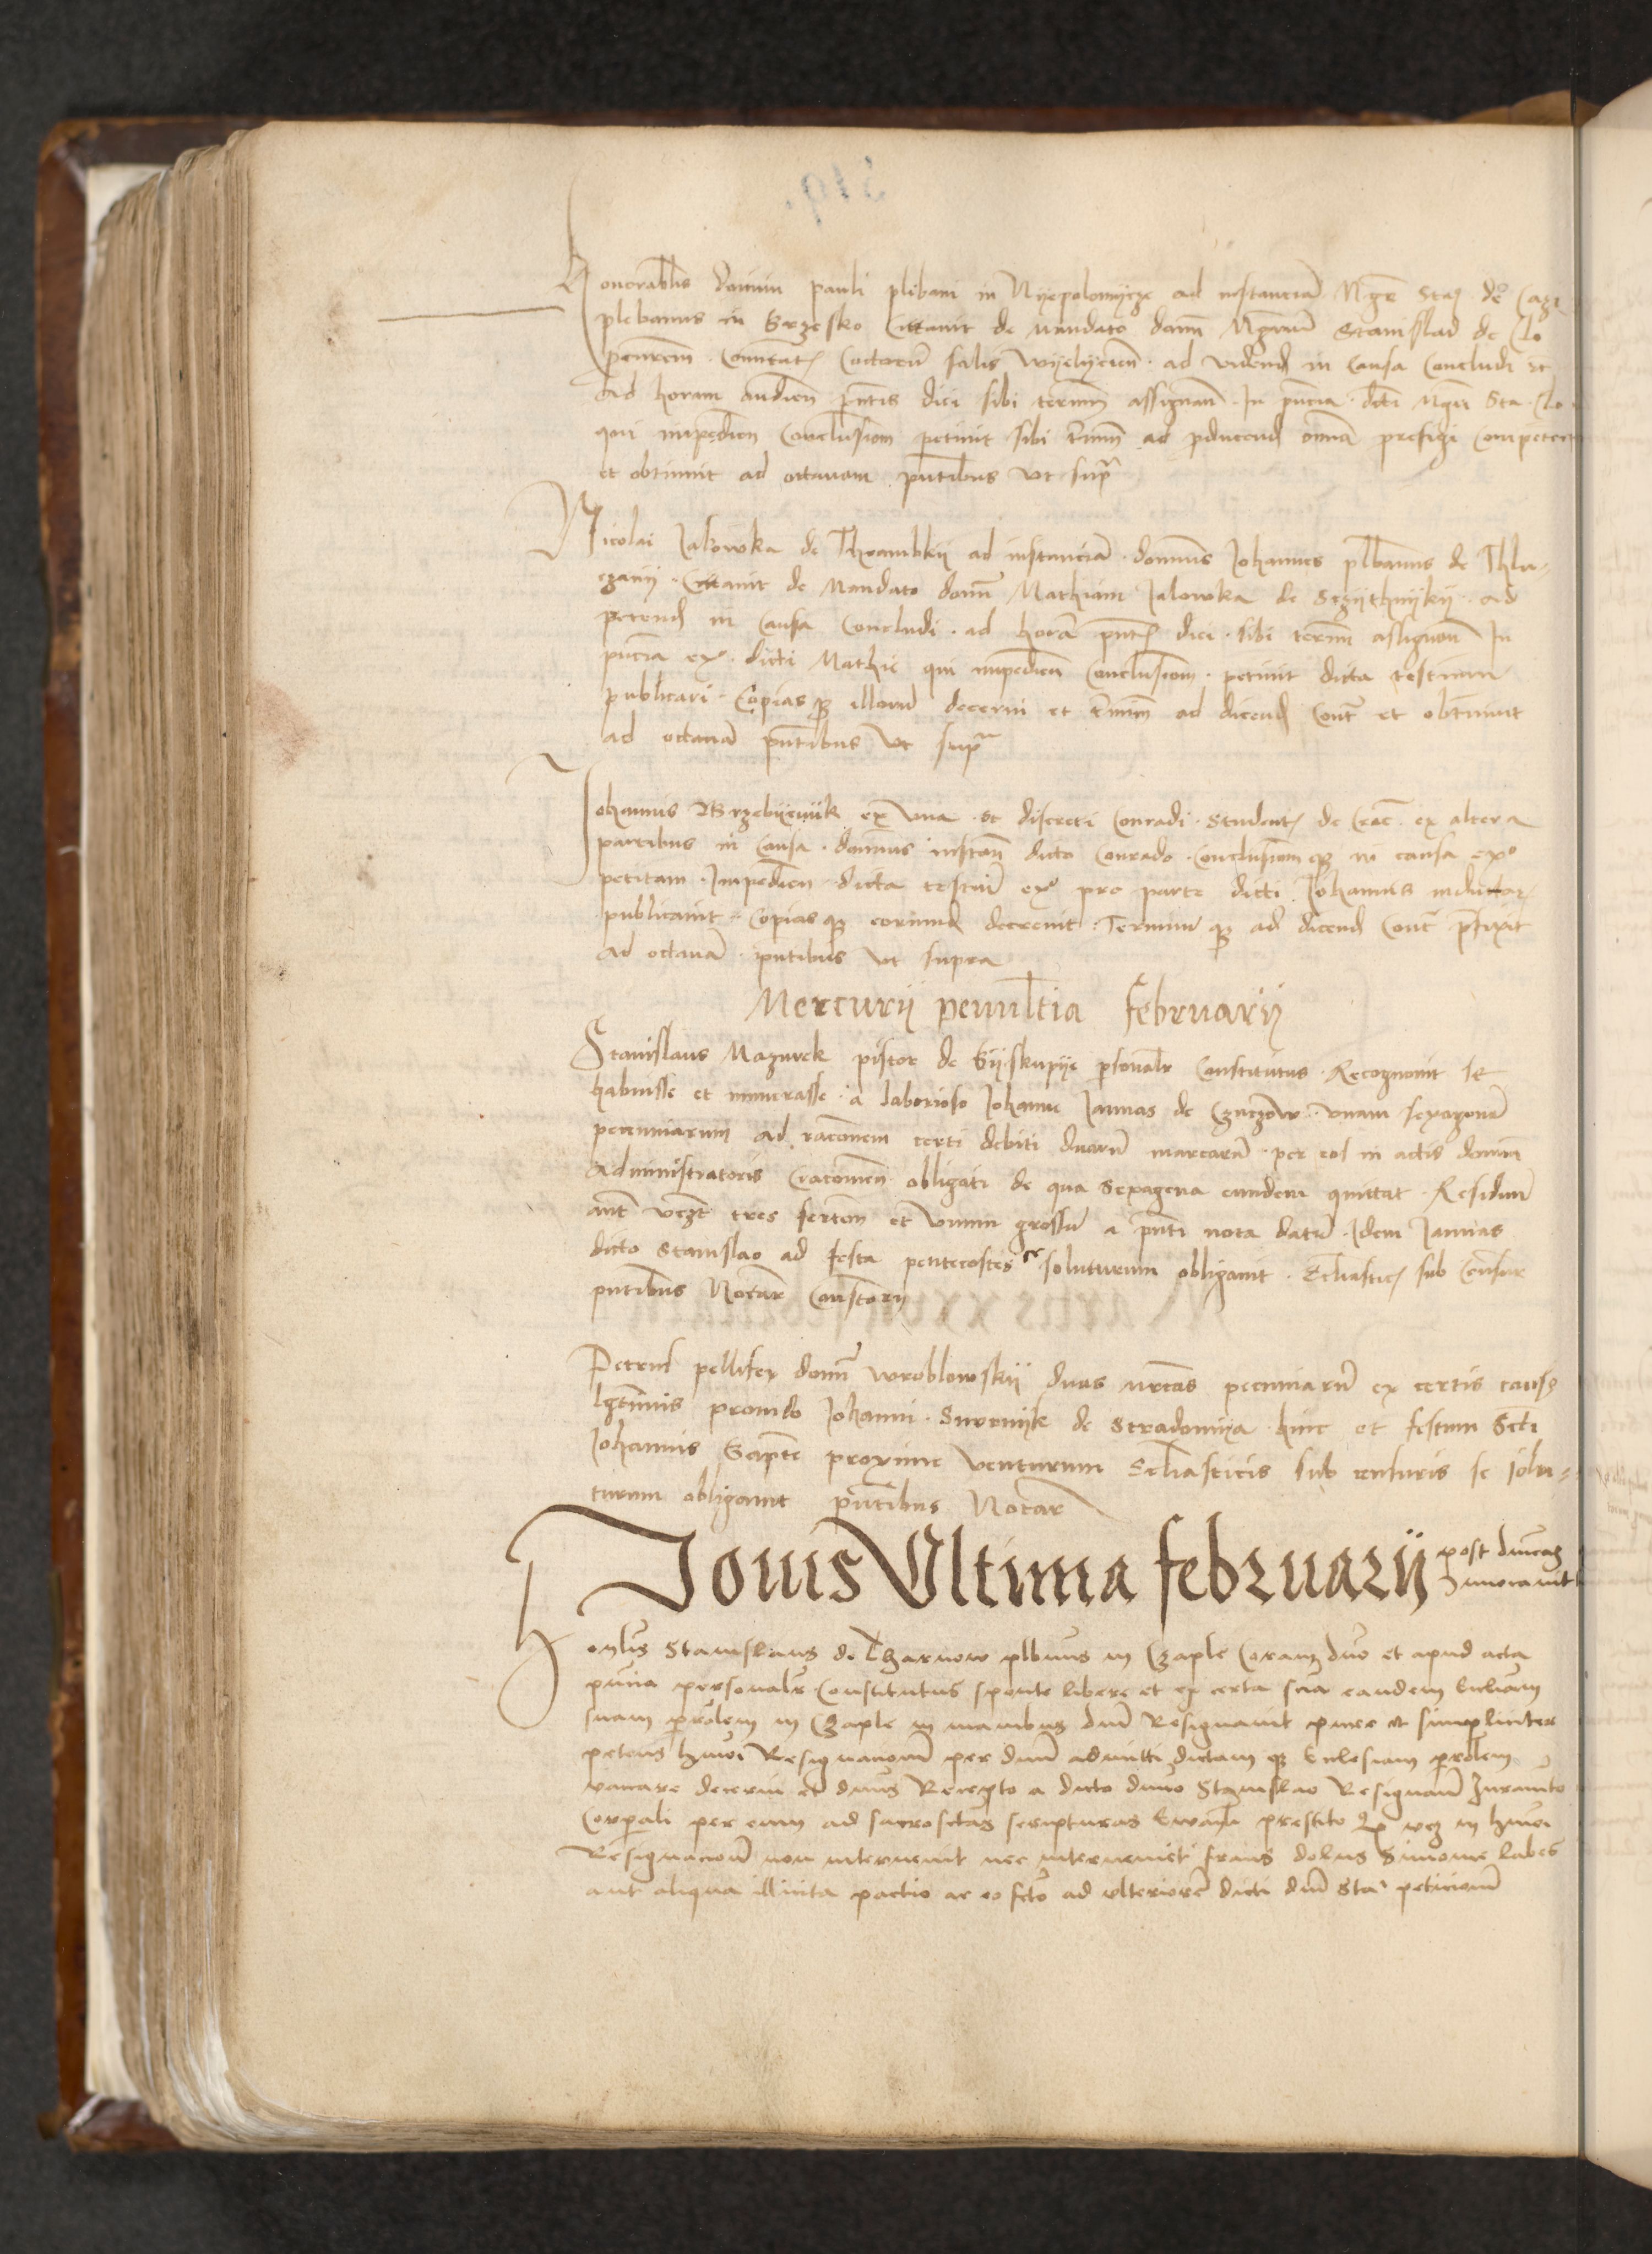 Honorabilis domini pauli plebani in Nyepolomycze ad instanciam Mgri Sta de Cazi
plebanus in Brzesko Citavit de mandato domini Mgrm Stanislaum de Clo
Connentat Coctorum salis Wyelycien ad videndum in Causa Concludi etc
ad horam audien pntis diei sibi terminum assignatum In pncia dicti Mgri Sta Clo
qui impedien Conclusionem petivit sibi tminum ad producendum omnia prefigi Competentem
et obtinuit ad octavam pntibus ut supra
Nicolai Jalowka de Thrambky ad instanciam dominus Johannes plebanus de Thlu-
czany Citavit de Mandato domini Mathiam Jalowka de Sczythnyky ad
petend in Causa Concludi ad horam pntis diei sibi terminum assignatum In
pncia ex dicti Mathie qui impedien Conclusionem petivit dicta testium
publicari Copias q illorum decerni et tminum ad dicend Contra et obtinuit
ad octavam pntibus ut supra
Johannis Brzebyenyk ex una et discreti Conradi Student de Crac ex altera
partibus in Causa dominus instan dicto Conrado Conclusionem q in causa ex
petitam Impedien dicta testium ex pro parte dicti Johannis inductor
publicavit Copias q eorumd decrevit Terminum q ad dicend Contra prefixit
ad octavam pntibus ut supra
Mercurii penultima februarii
Stanislaus Mazurek pistor de Byskupye personaliter Constitutus Recognovit se
habuisse et numerasse a laborioso Johanne Jannas de Czuczow unam sexagenam
pecuniarum ad racionem certi debiti duarum marcarum per eos in actis domini
Administratoris Cracovien obligati de qua sexagena eundem quittat Residuum
aut vczt tres fertones et unum grossum a pnti nota datum Idem Jannas
dicto Stanislao ad festa pentecostes se soluturum obligavit Ecclasticis sub Censuris
pntibus Notar Consistorii
Petrus pellifex domini Wroblowsky duas mrcas pecuniarum ex certis causis
legitimis provido Johanni Surnyk de Stradomya hinc et festum Scti
Johannis Bapte proxime venturum Ecclasticis sub censuris se solu-
turum obligavit pntibus Notar
Jovis Ultima februarii post dnicas
Invocavit
Honlis Stanislaus de Tharnow plbnus in Czaple Coram dno et apud acta
pncia personalr Constitutus sponte libere et ex certa scia eandem Ecclesiam
suam parolem in Czaple in manibus dni Resignavit pure et simpliciter
petens hmoi Resignacionem per dnm admitti dictam q Ecclesiam parolem
vacare decerni et dnus Recepto a dicto dno Stanislao Resignante Juramento
Corporali per eum ad sacrosctas scripturas Ewanli prestito q vcz in hmoi
Resignacione non intervenit nec interveniet fraus dolus Simonie labes
aut aliqua illicita pactio ac eo scto ad ulteriorem dicti dni Sta peticionem